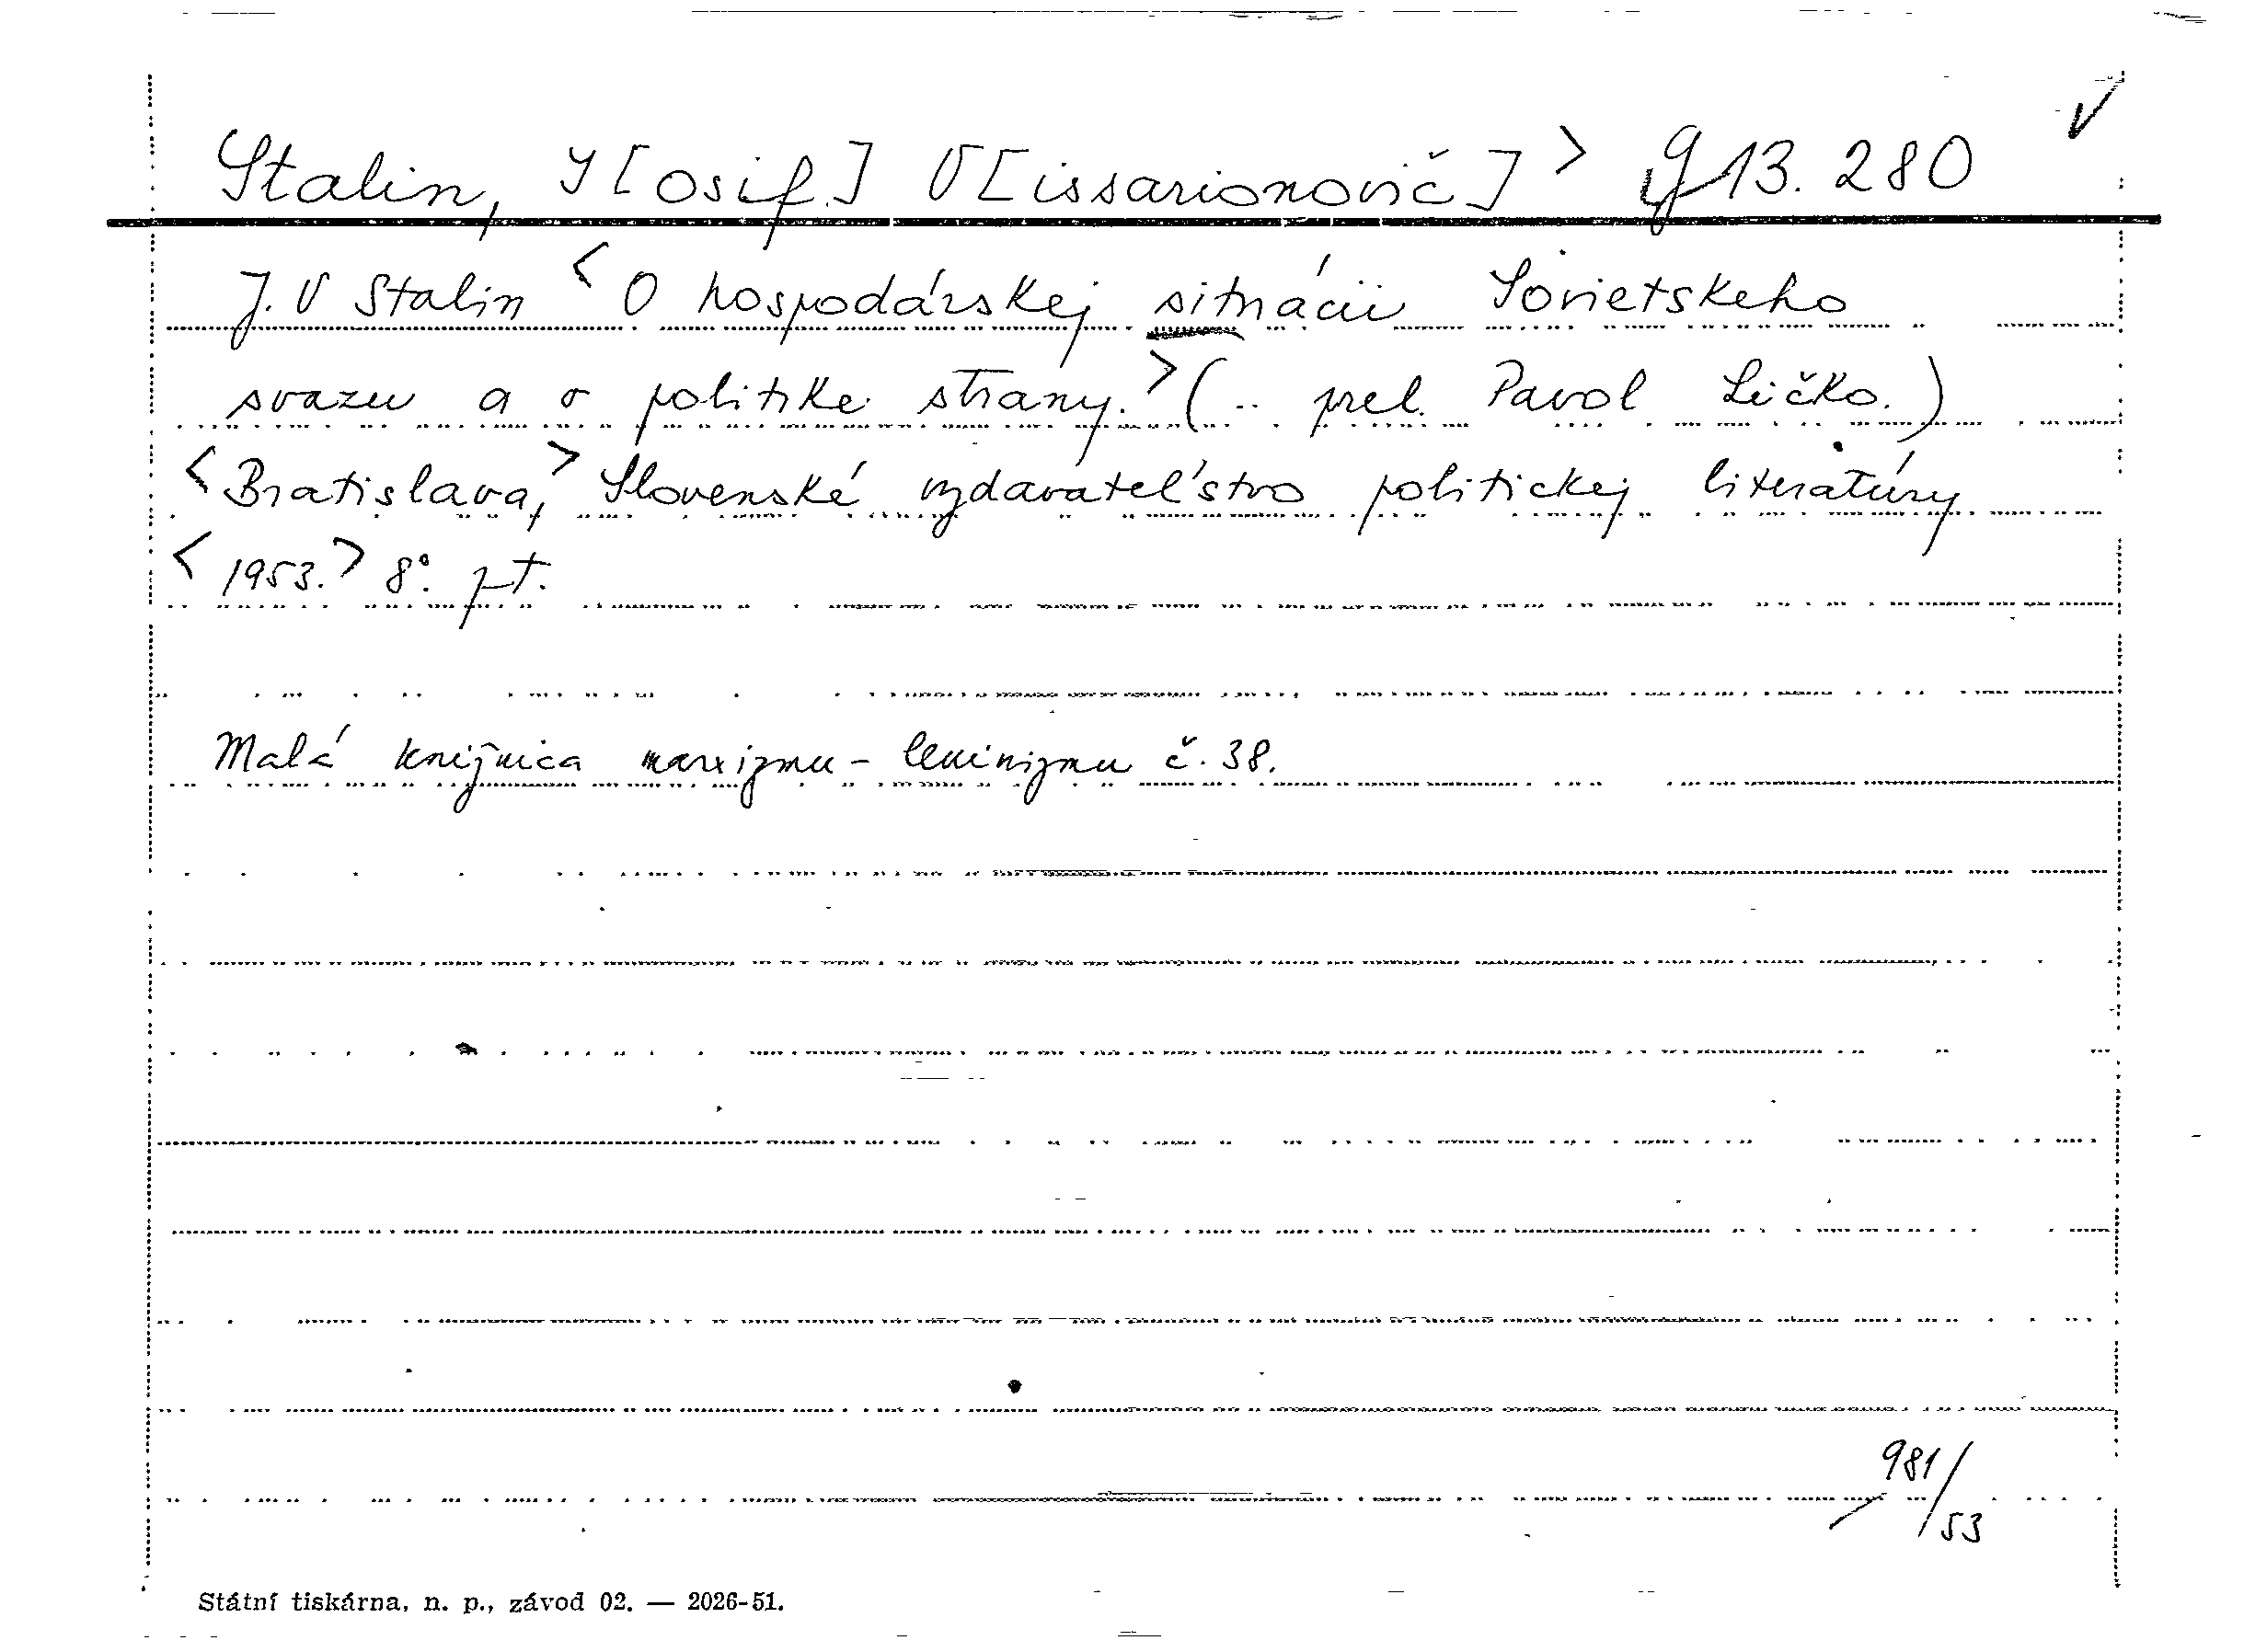 Stalin, J[osif.] V[issarionovič] > g 13.280
J. V Stalin < O hospodárskej situácii Sovietskeho
svazu a o politike strany. > (.. prel. Pavol Ličko.)
< Bratislava, > Slovenské vydavateľstvo politickej literatúry
< 1953. > 8°. pt.
Malá knižnica marxizmu - leninizmu č. 38.
981/53
Státní tiskárna, n. p., závod 02. — 2026-51.